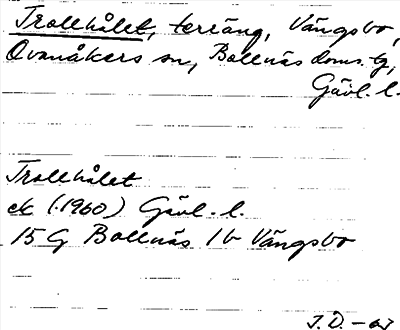 Trollhålet, terräng, Vängsbo,
Ovanåkers sn, Bollnäs doms.g,
Gävl. l.
Trollhålet
ek (1960) Gävl. l.
15 G Bollnäs 1b Vängsbo
J.D. – 63